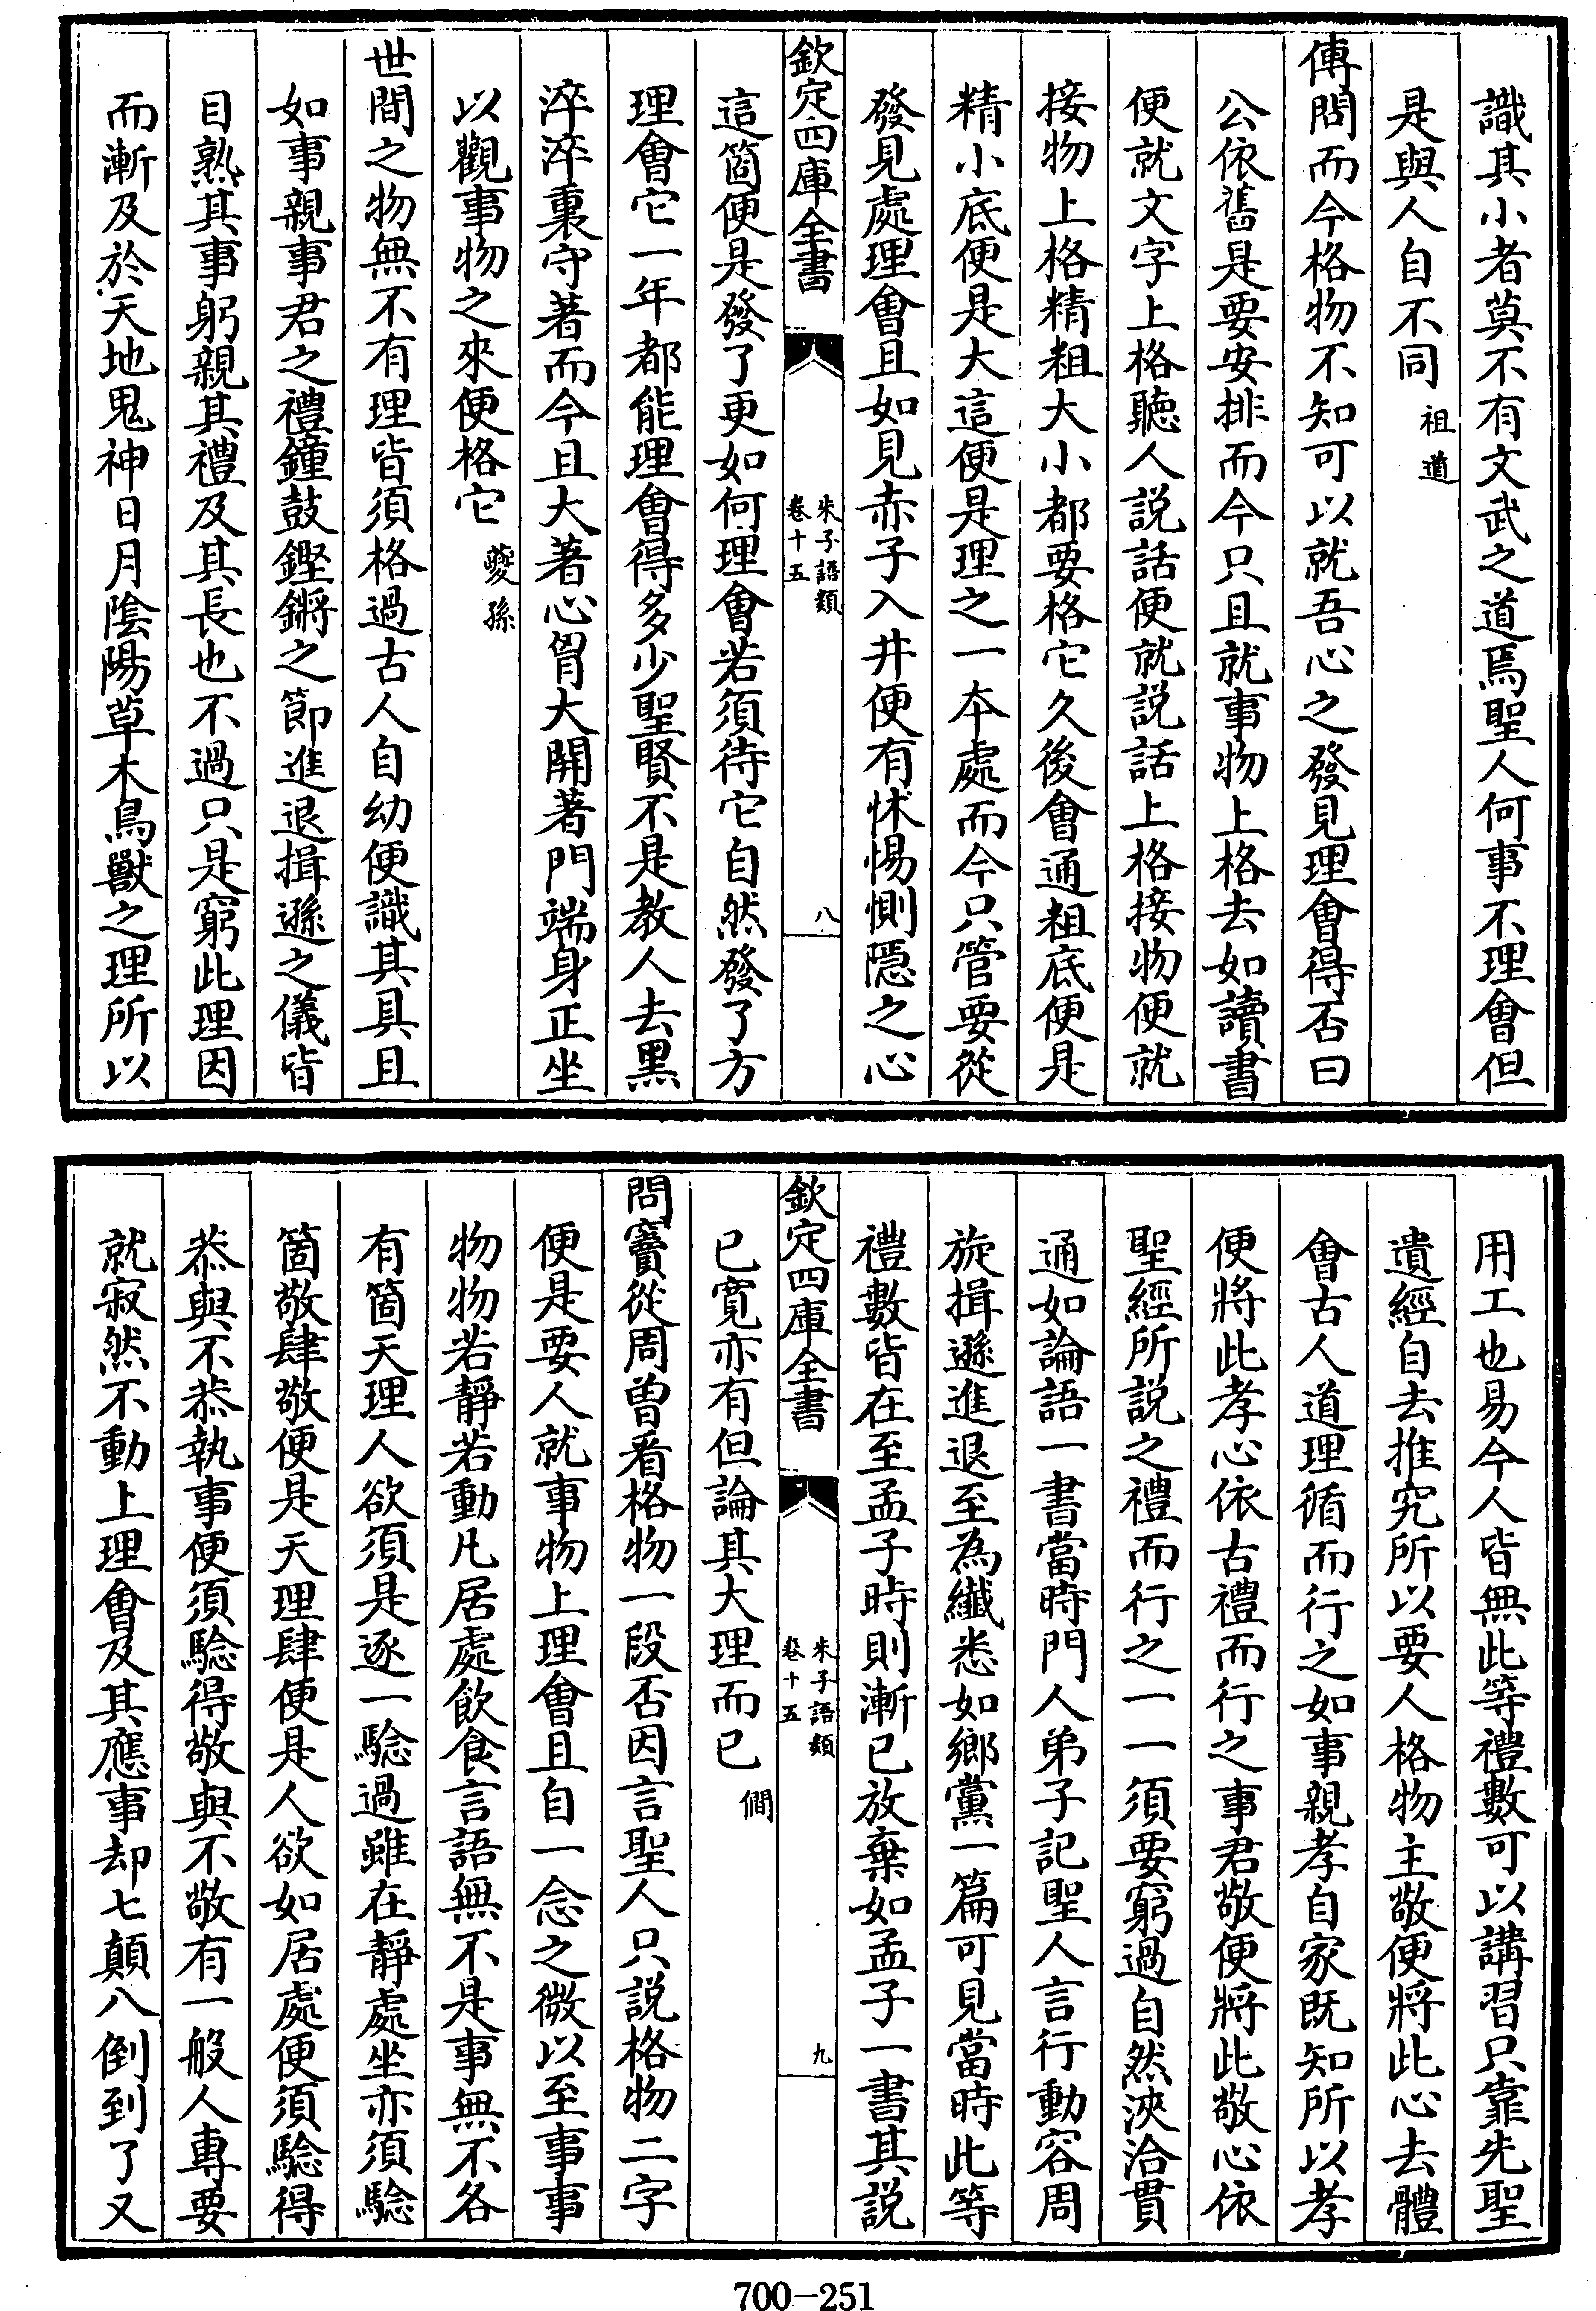 識其小者莫不有文武之道焉聖人何事不理會但
是與人自不同祖道
傅問而今格物不知可以就吾心之發見理會得否曰
公依舊是要安排而今只且就事物上格去如讀書
便就文字上格聽人説話便就説話上格接物便就
接物上格精粗大小都要格它久後會通粗底便是
精小底便是大這便是理之一本處而今只管要從
發見處理會且如見赤子入井便有怵惕惻隱之心
欽定四庫全書
朱子語類
卷十五
八
這箇便是發了更如何理會若須待它自然發了方
理會它一年都能理會得多少聖賢不是教人去黑
淬淬裏守著而今且大著心胷大開著門端身正坐
以觀事物之來便格它夔孫
世間之物無不有理皆須格過古人自幼便識其具且
如事親事君之禮鐘鼓鏗鏘之節進退揖遜之儀皆
目熟其事躬親其禮及其長也不過只是窮此理因
而漸及於天地鬼神日月陰陽草木鳥獸之理所以
用工也易今人皆無此等禮數可以講習只靠先聖
遺經自去推究所以要人格物主敬便將此心去體
會古人道理循而行之如事親孝自家既知所以孝
便將此孝心依古禮而行之事君敬便將此敬心依
聖經所説之禮而行之一一須要窮過自然浹洽貫
通如論語一書當時門人弟子記聖人言行動容周
旋揖遜進退至為纖悉如鄉黨一篇可見當時此等
禮數皆在至孟子時則漸已放棄如孟子一書其説
欽定四庫全書
朱子語類
卷十五
九
已寛亦有但論其大理而已僩
問竇從周曽看格物一段否因言聖人只説格物二字
便是要人就事物上理會且自一念之微以至事事
物物若靜若動凡居處飲食言語無不是事無不各
有箇天理人欲須是逐一驗過雖在靜處坐亦須驗
箇敬肆敬便是天理肆便是人欲如居處便須驗得
恭與不恭執事便須驗得敬與不敬有一般人專要
就寂然不動上理會及其應事却七顛八倒到了又
700-251